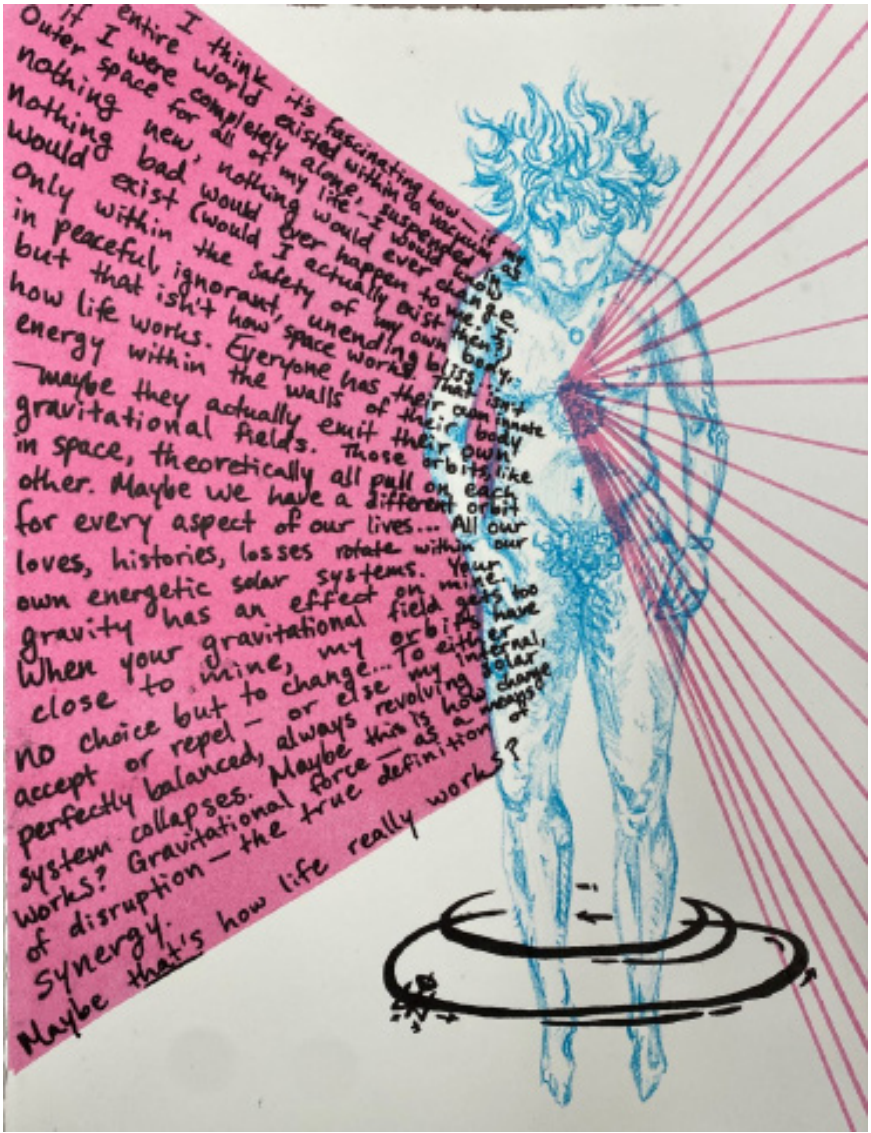 I think it's fascinating how — if my
entire world existed within a vacuum, as
if I were completely alone, suspended in
Outer space for all of my life — I would know
nothing new, nothing would ever change,
nothing bad would ever happen to me. I
would exist (would I actually exist then?)
Only within the safety of my own body,
in peaceful, ignorant, unending bliss...
but that isn't how space works. That isn't
how life works. Everyone has their own innate
energy within the walls of their body
— maybe they actually emit their own
gravitational fields. Those orbits, like
in space, theoretically all pull on each
other. Maybe we have a different orbit
for every aspect of our lives... All our
loves, histories, losses rotate within our
own energetic solar systems. Your
gravity has an effect on mine.
When your gravitational field gets too
close to mine, my orbits have
no choice but to change... To either
accept or repel — or else my internal,
perfectly balanced, always revolving solar
system collapses. Maybe this is how change
works? Gravitational force — as a means
of disruption — the true definition of
synergy.
Maybe that's how life really works?